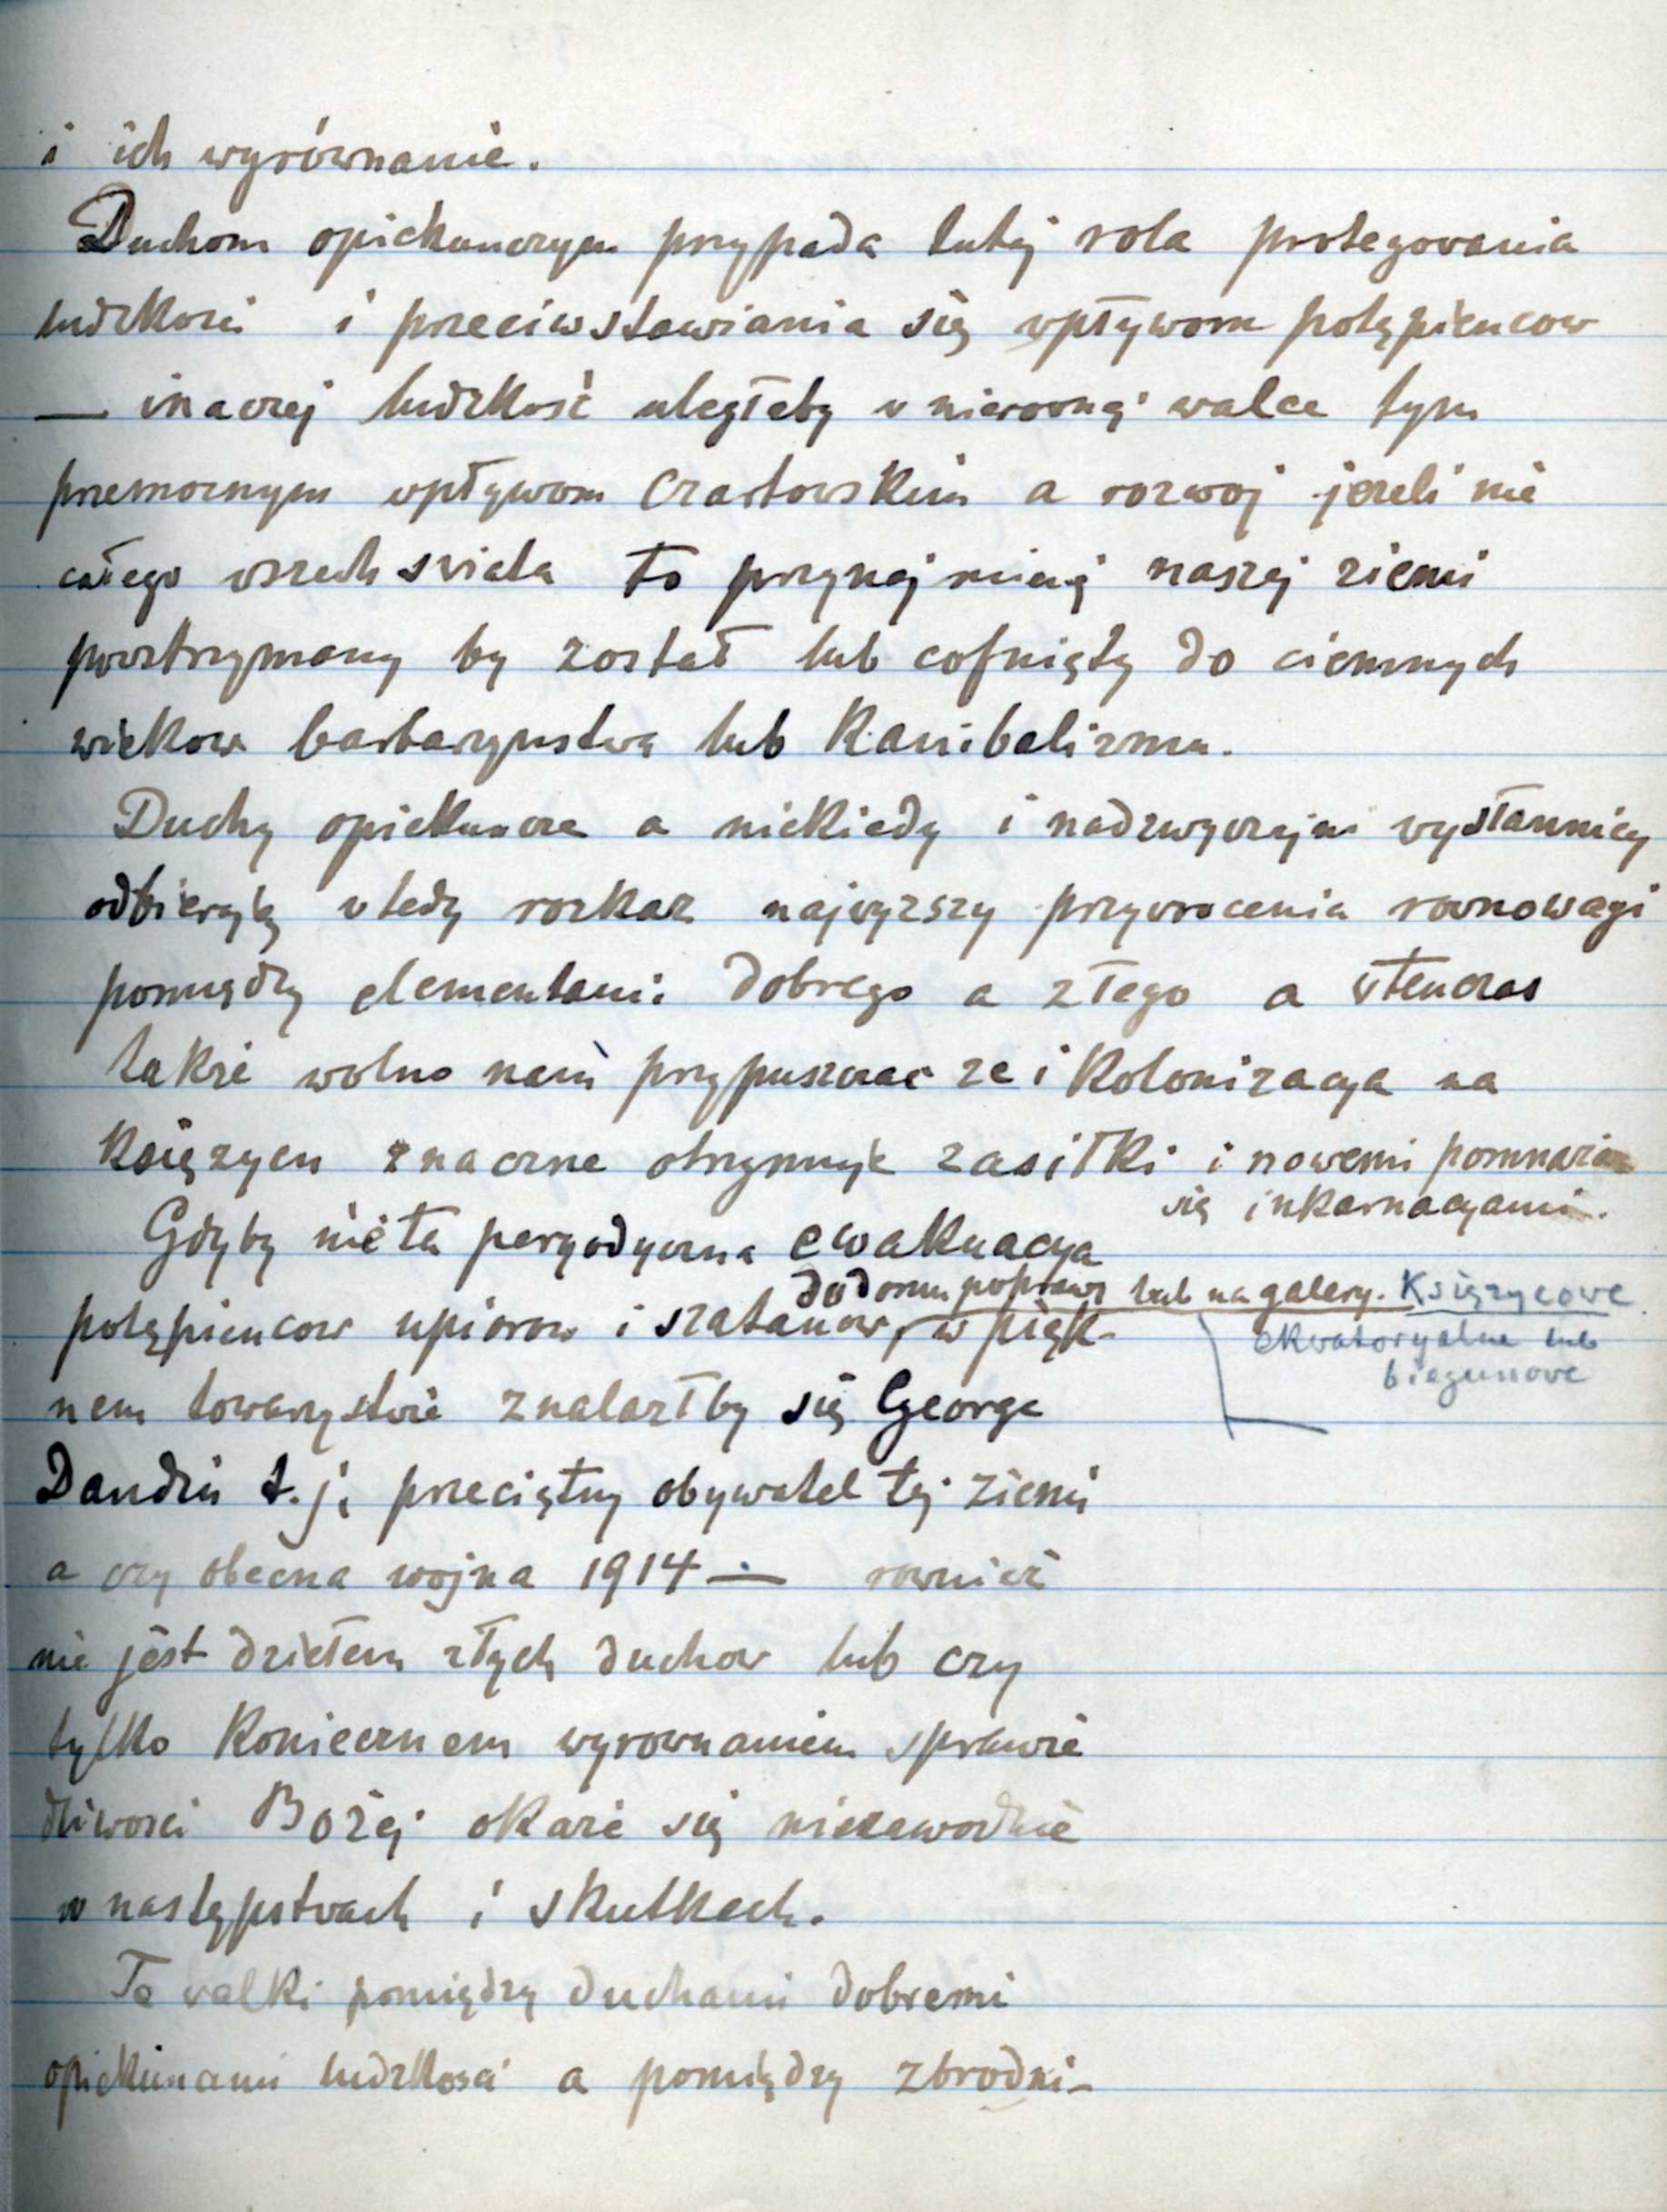 i ich wyrównanie.
Duchom opiekunczym przypada tutej rola protegovania
ludzkosci i przeciwstawiania się vpływom potępiencow
— inaczej ludzkość uległaby v nierovnej walce tym
przemocnym vpływom czartowskim a rozwoj jezeli nie
całego vszech sviata to przynajmniej naszej ziemi
powstrzymany by został lub cofnięty do ciemnych
wiekow barbarzynstwa lub Kanibalizmu.
Duchy opiekuncze a niekiedy i nadzwyczajni vysłannicy
odbierają vtedy rozkaz najvyzszy przyvrocenia rovnowagi
pomiędzy elementami dobrego a złego a vtenczas
takze wolno nam przypuszczac ze i Kolonizacya na
Księzycu znaczne otrzymuje zasiłki i nowemi pomnaza
się inkarnacyami.
Gdyby nie ta peryodyczna ewakuacya
do domu popravy lub na galery. Księzycove
potępiencow upiorow i szatanow, w pięk-
ekvatoryalne lub
biegunove
nem towarzystvie znalazłby się George
Dandin t.j. przeciętny obywatel tej ziemi
a czy obecna wojna 1914 — rownież
nie jest dziełem złych duchow lub czy
tylko Koniecznem wyrownaniem sprawie
dliwosci Bożej okaże się niezawodnie
w następstvach i skutkach.
Te valki pomiędzy duchami dobremi
opiekunami ludzkosci a pomiędzy zbrodni-